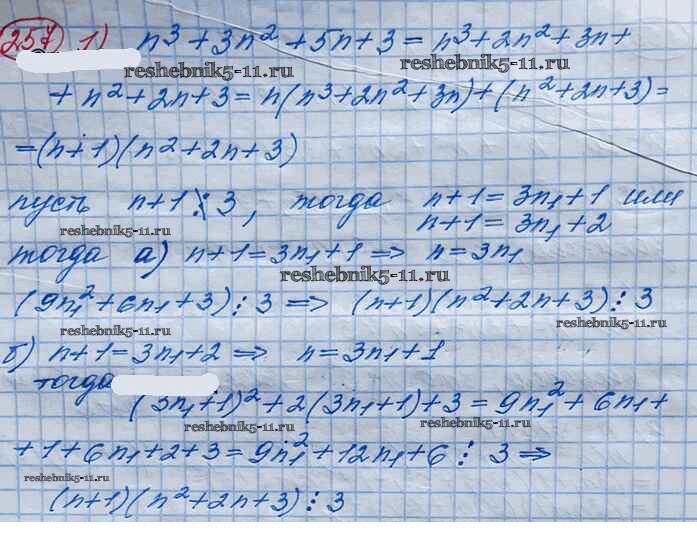 257 1) n³ + 3n² + 5n + 3 = n³ + 2n² + 3n +
reshebnik5-11.ru
reshebnik5-11.ru
+ n² + 2n + 3 = n(n³ + 2n² + 3n) + (n² + 2n + 3) =
= (n + 1)(n² + 2n + 3)
пусть n + 1 ⋮̸ 3, тогда n + 1 = 3n₁ + 1 или
n + 1 = 3n₁ + 2
reshebnik5-11.ru
тогда а) n + 1 = 3n₁ + 1 => n = 3n₁
reshebnik5-11.ru
(9n₁² + 6n₁ + 3) ⋮ 3 => (n + 1)(n² + 2n + 3) ⋮ 3
reshebnik5-11.ru
reshebnik5-11.ru
б) n + 1 = 3n₁ + 2 => n = 3n₁ + 1
тогда
(3n₁ + 1)² + 2(3n₁ + 1) + 3 = 9n₁² + 6n₁ +
reshebnik5-11.ru
reshebnik5-11.ru
+ 1 + 6n₁ + 2 + 3 = 9n₁² + 12n₁ + 6 ⋮ 3 =>
reshebnik5-11.ru
(n + 1)(n² + 2n + 3) ⋮ 3